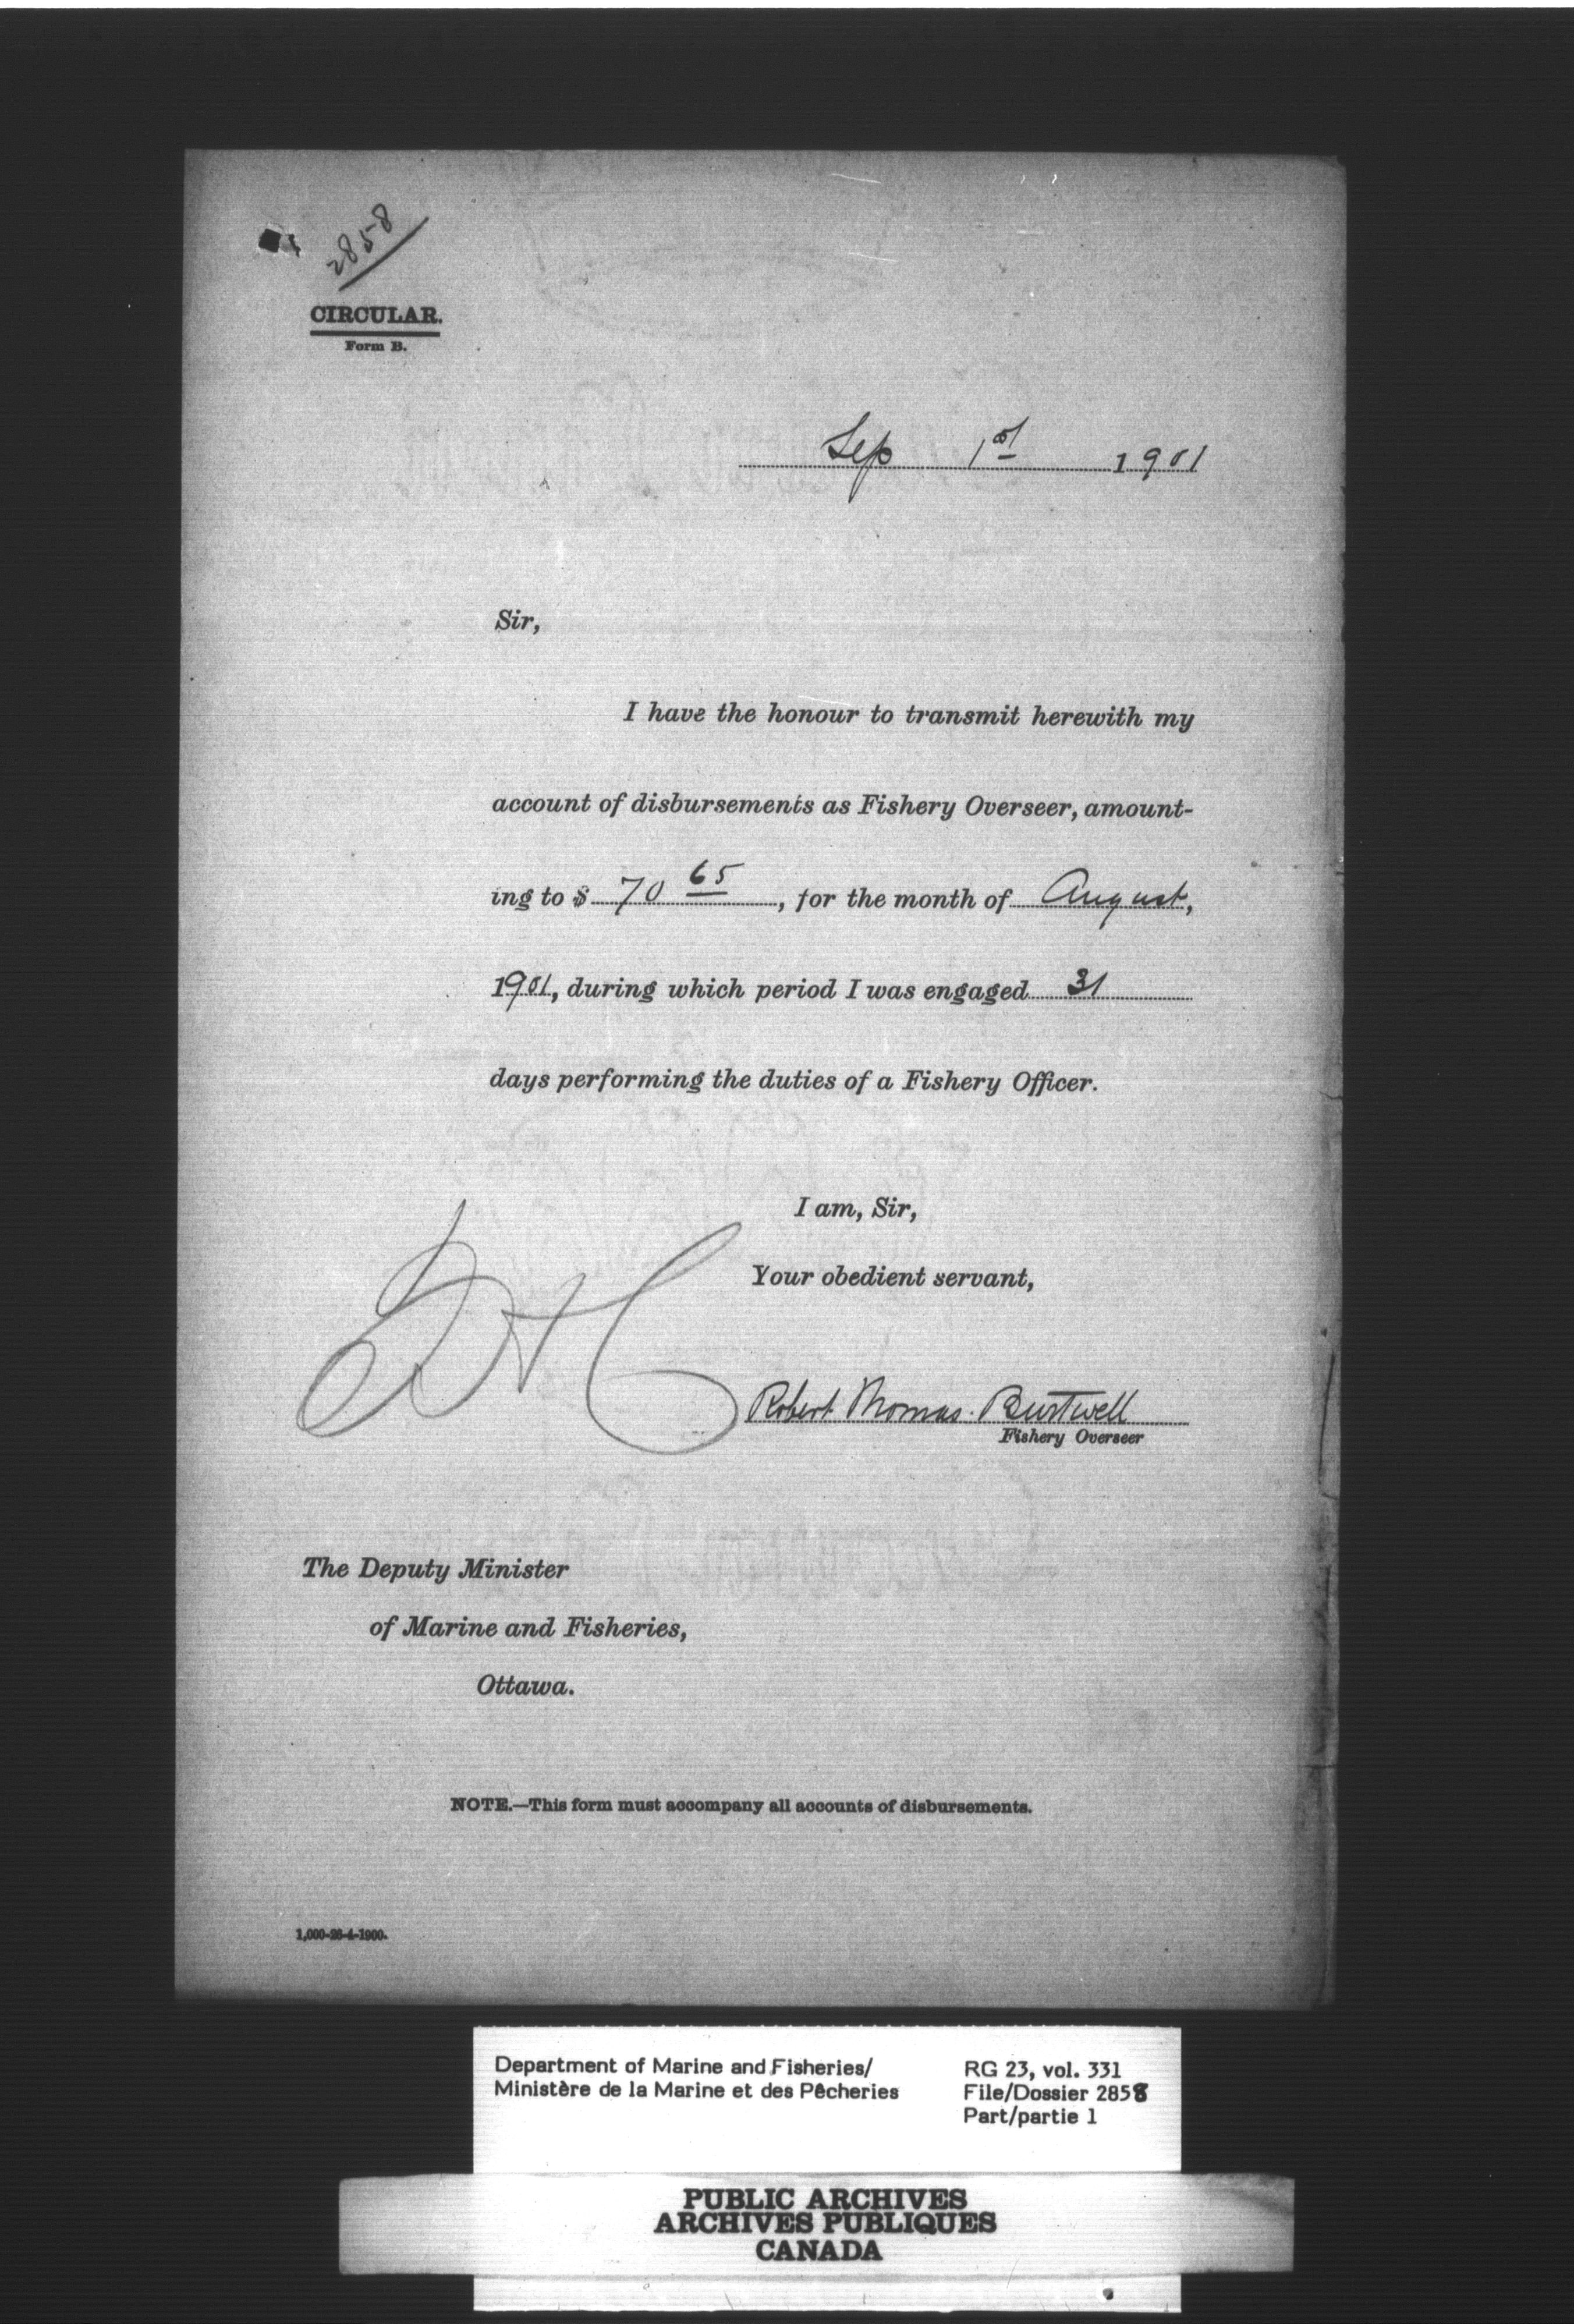 2858
CIRCULAR.
Form B.
Sep 1st 1901
Sir,
I have the honour to transmit herewith my
account of disbursements as Fishery Overseer, amount-
ing to $ 70 65, for the month of August,
1901, during which period I was engaged 31
days performing the duties of a Fishery Officer.
I am, Sir,
Your obedient servant,
Robert Thomas Burtwell
Fishery Overseer
The Deputy Minister
of Marine and Fisheries,
Ottawa.
NOTE.—This form must accompany all accounts of disbursements.
1,000-26-4-1900.
Department of Marine and Fisheries/
Ministère de la Marine et des Pêcheries
RG 23, vol. 331
File/Dossier 2858
Part/partie 1
PUBLIC ARCHIVES
ARCHIVES PUBLIQUES
CANADA